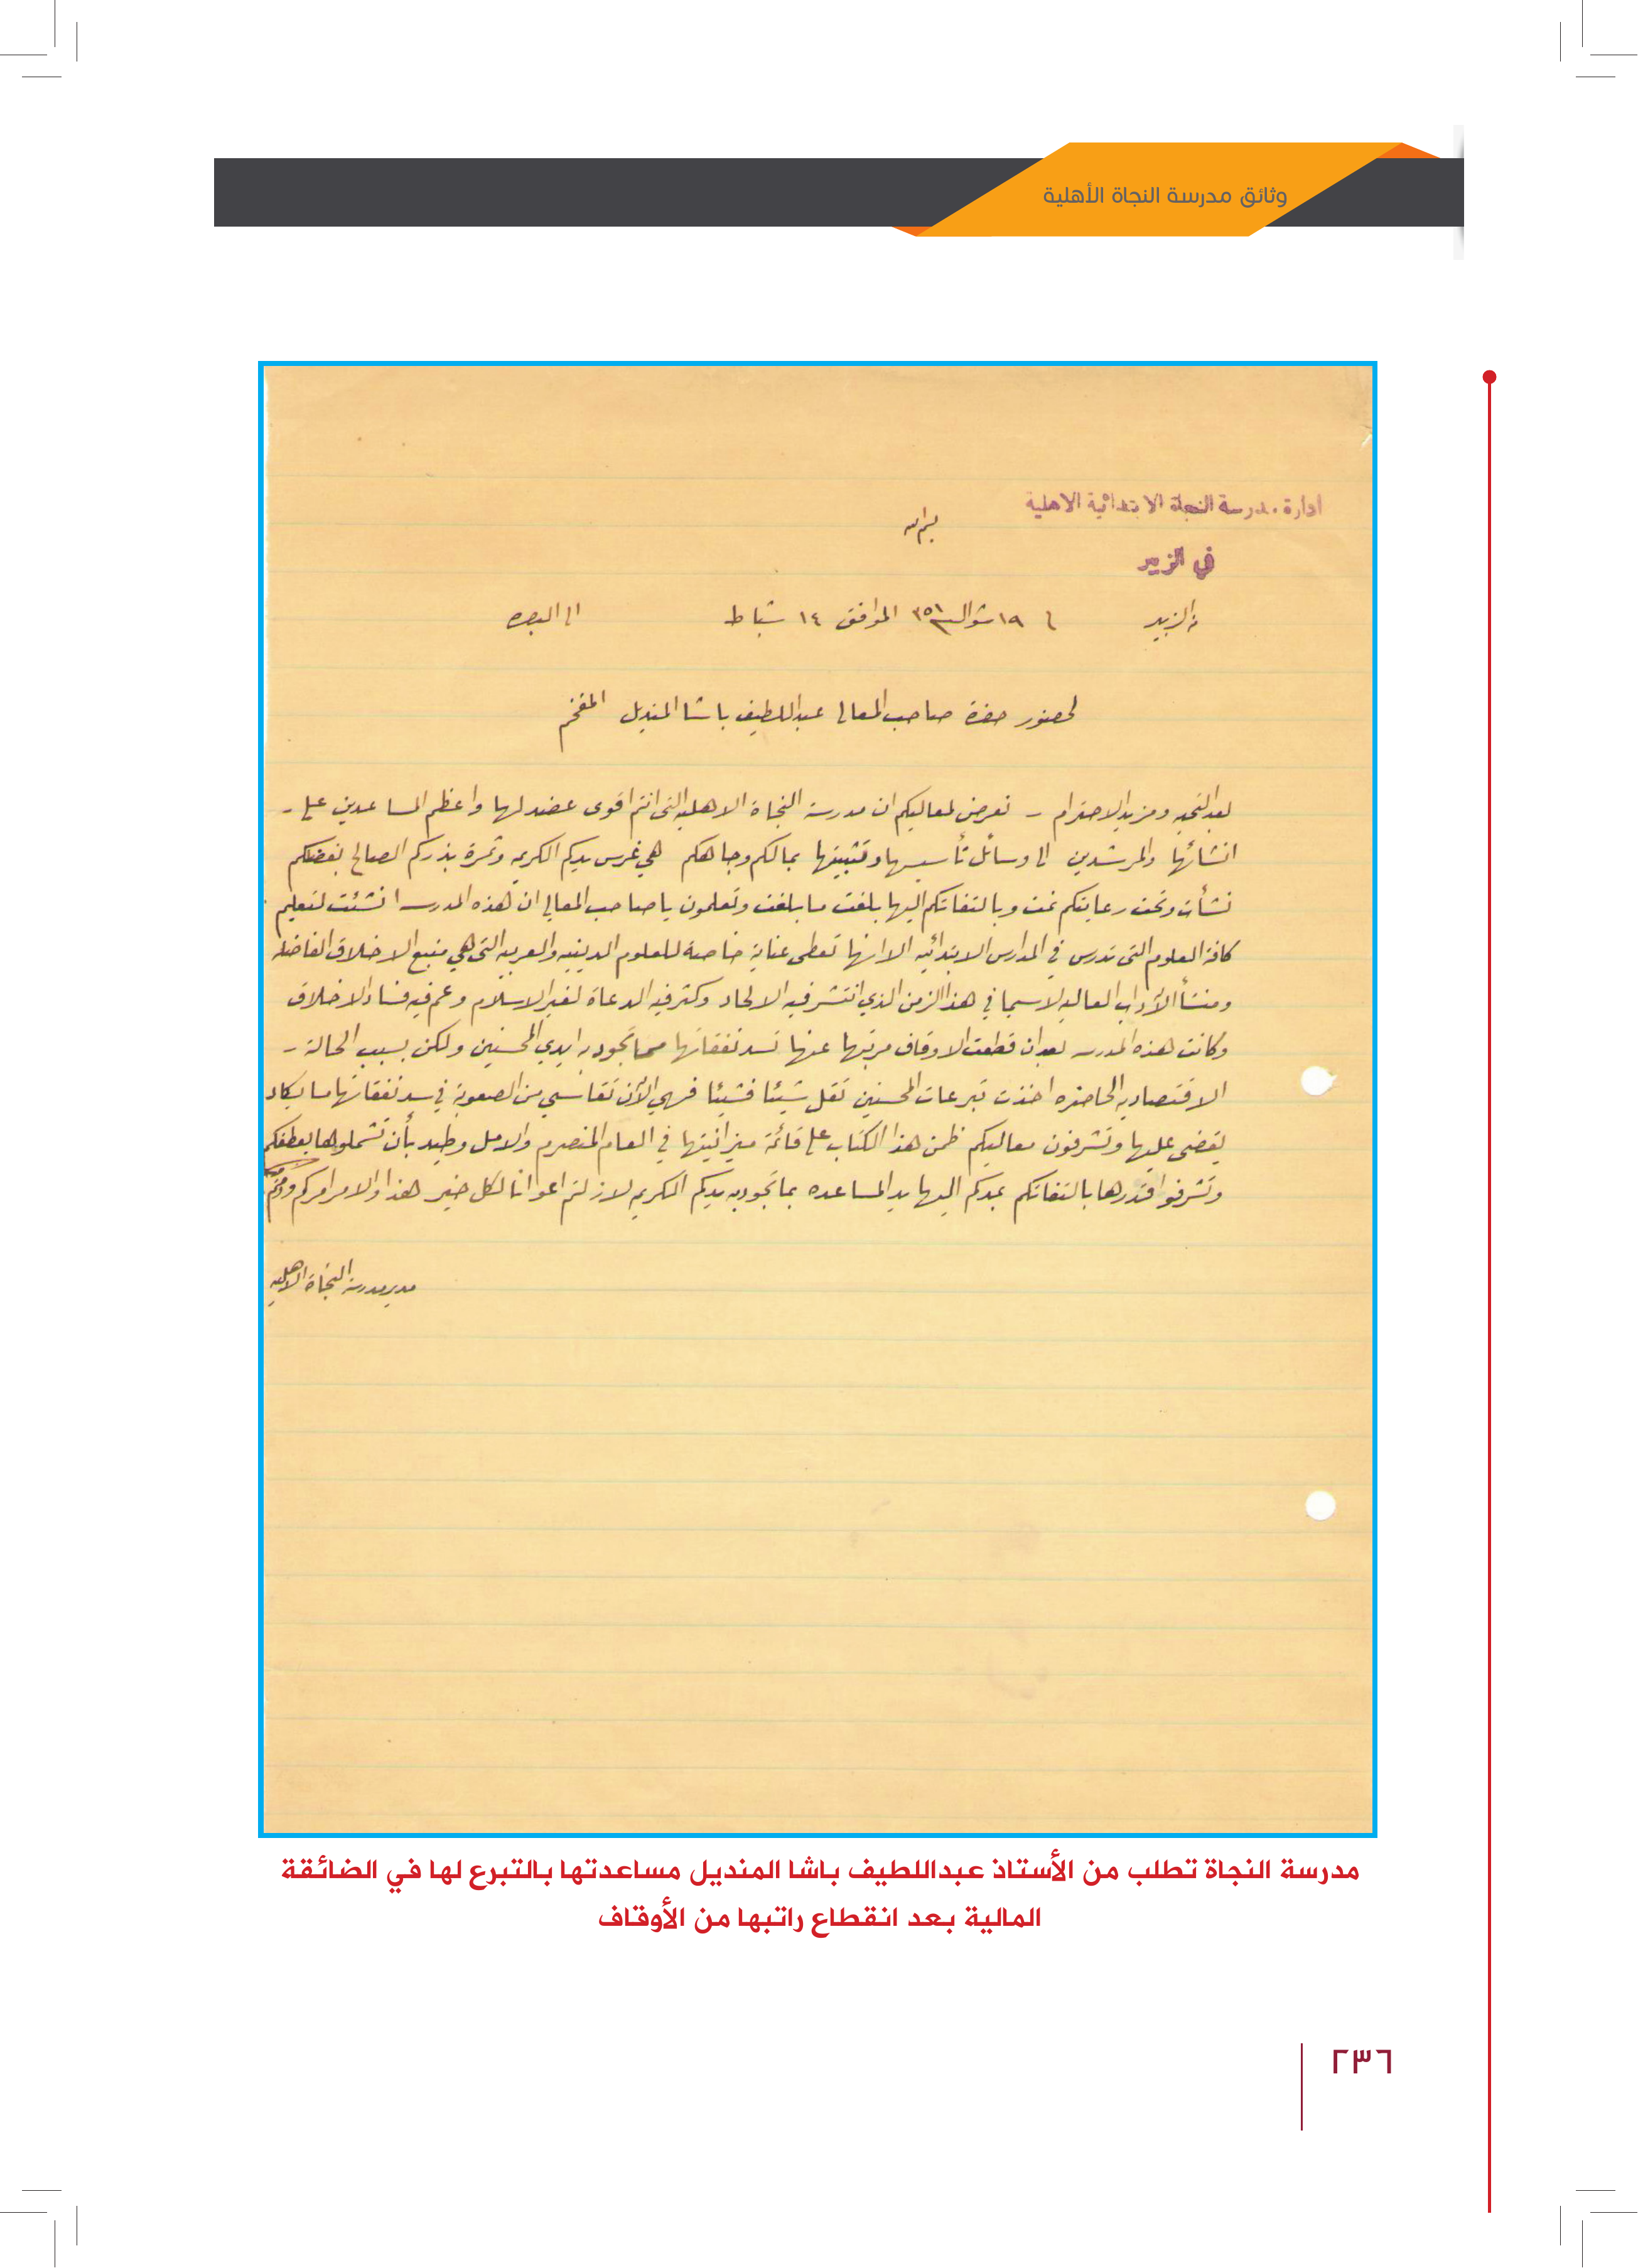 وثائق مدرسة النجاة الأهلية
ادارة مدرسة النجاة الابتدائية الاهلية
بسم الله
في الزبير
من الزبير في ١٩ شوال سنة ٣٥١ الموافق ١٤ شباط الى البصره
لحضور حضرة صاحب المعالي عبداللطيف باشا المنديل المفخم
بعد التحيه ومزيد الاحترام – نعرض لمعاليكم ان مدرسة النجاة الاهليه التي انتم اقوى عضد لها واعظم المساعدين على –
انشائها والمرشدين الى وسائل تأسيسها وتثبيتها بمالكم وجاهكم هي غرس يدكم الكريمه وثمرة بذركم الصالح بفضلكم
نشأت وتحت رعايتكم نمت وبالتفاتكم اليها بلغت ما بلغت وتعلمون يا صاحب المعالي ان هذه المدرسه انشئت لتعليم
كافة العلوم التي تدرس في المدارس الابتدائيه الا انها تعطى عناية خاصة للعلوم الدينيه والعربيه التي هي منبع الاخلاق الفاضله
ومنشأ الآداب العاليه لاسيما في هذا الزمن الذي انتشر فيه الالحاد وكثر فيه الدعاة لغير الاسلام وعم فيه فساد الاخلاق
وكانت هذه المدرسه بعد ان قطعت الاوقاف مرتبها عنها تسد نفقاتها مما تجود به ايدي المحسنين ولكن بسبب الحالة –
الاقتصاديه الحاضره اخذت تبرعات المحسنين تقل شيئا فشيئا فهي الآن تقاسي من الصعوبة في سد نفقاتها ما يكاد
يقضي عليها وتشرفون معاليكم ظمن هذا الكتاب على قائمة ميزانيتها في العام المنصرم والامل وطيد بأن تشملوها بعطفكم
وتشرفوا قدرها بالتفاتكم بمدكم اليها يد المساعده بما تجود به يدكم الكريمه لازلتم اعوانا لكل خير هذا والامر امركم ودمتم
مدير مدرسة النجاة الاهليه
مدرسة النجاة تطلب من الأستاذ عبداللطيف باشا المنديل مساعدتها بالتبرع لها في الضائقة
المالية بعد انقطاع راتبها من الأوقاف
٢٣٦